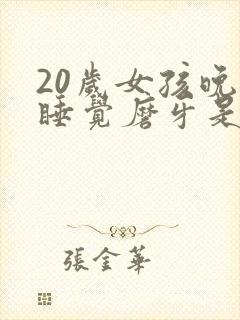 20歲女孩晚
睡覺磨牙是
張金華